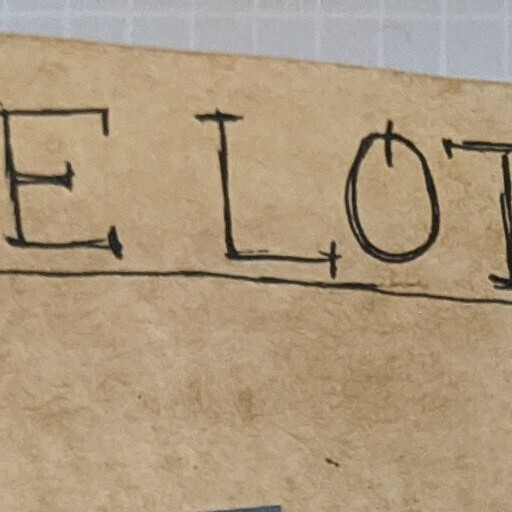 E LOT